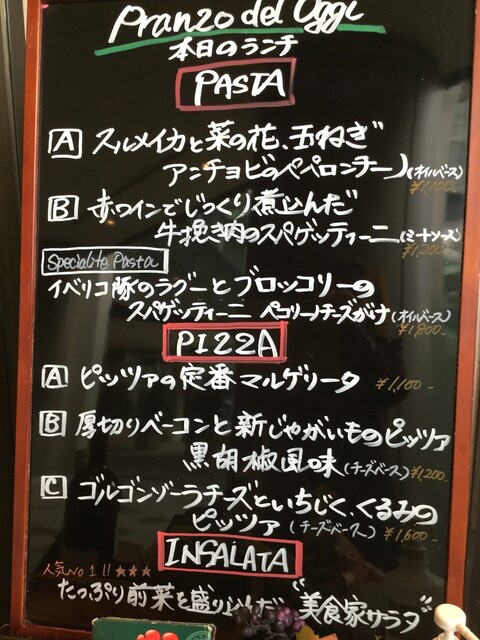 Pranzo del Oggi
本日のランチ
PASTA
A スルメイカと菜の花、玉ねぎ
アンチョビのペペロンチーノ(オイルベース)
¥1,100-
B 赤ワインでじっくり煮込んだ
牛挽き肉のスパゲッティーニ(ミートソース)
¥1,200-
Specialite Pasta
イベリコ豚のラグーとブロッコリーの
スパゲッティーニ ペコリーノチーズがけ(オイルベース)
¥1,800-
PIZZA
A ピッツァの定番マルゲリータ ¥1,100-
B 厚切りベーコンと新じゃがいものピッツァ
黒胡椒風味(チーズベース)¥1,200-
C ゴルゴンゾーラチーズといちじく、くるみの
ピッツァ(チーズベース) ¥1,600-
INSALATA
人気No1!!★★★
たっぷり前菜を盛り込んだ"美食家サラダ"